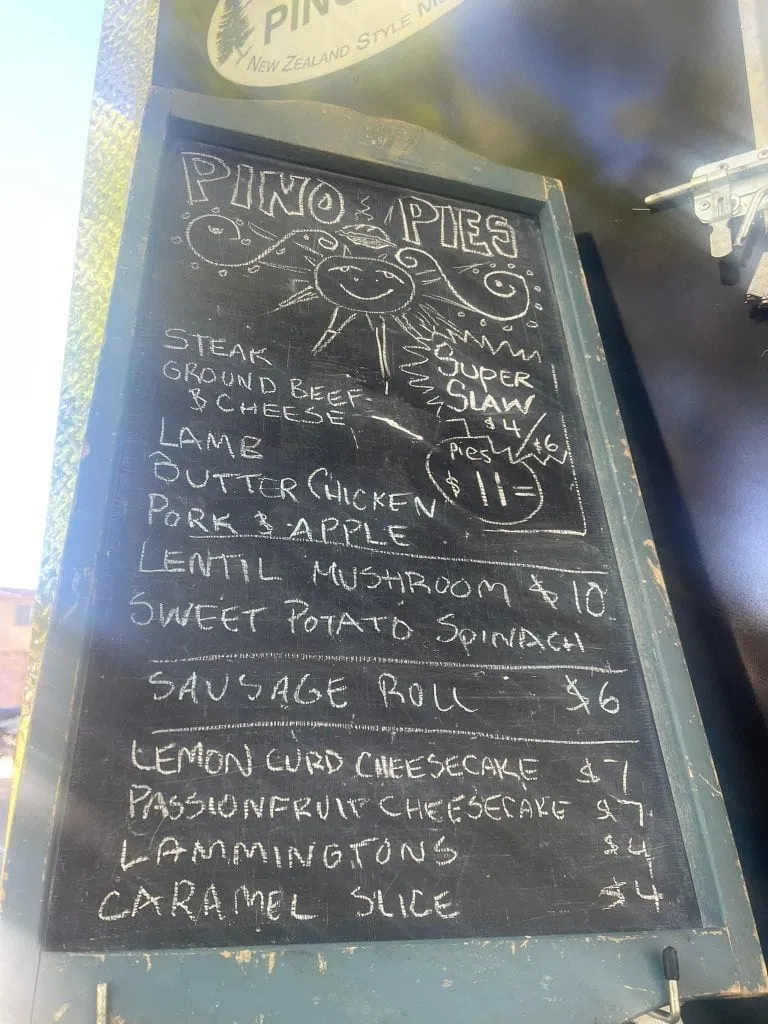 PINO
NEW ZEALAND STYLE
PINO PIES
STEAK
GROUND BEEF
& CHEESE
LAMB
BUTTER CHICKEN
PORK & APPLE
SUPER
SLAW
$4/$6
Pies
$11=
LENTIL MUSHROOM $10
SWEET POTATO SPINACH
SAUSAGE ROLL $6
LEMON CURD CHEESECAKE $7
PASSIONFRUIT CHEESECAKE $7
LAMMINGTONS $4
CARAMEL SLICE $4